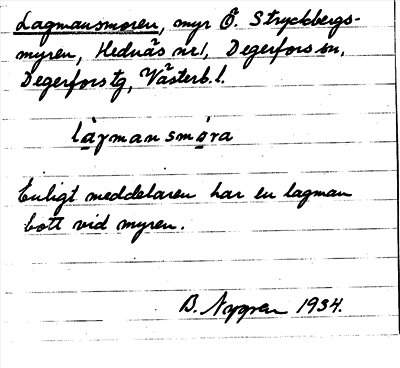 Lagmansmoren, myr Ö. Stryckbergs-
myren, Hednäs nr 1, Degerfors sn,
Degerfors tg, Västerb. l.
làγmansmόra
Enligt meddelaren har en lagman
bott vid myren.
B. Nygren 1934.